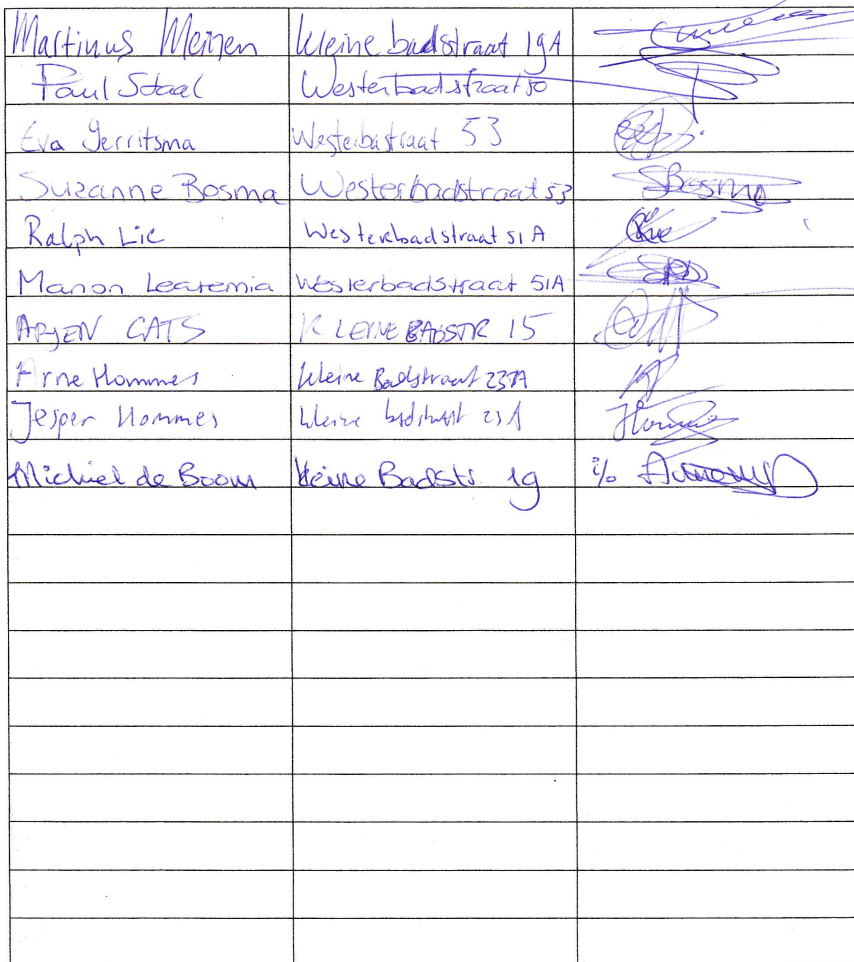 Martinus Meinen Kleine badstraat 19A
Paul Staal Westerbadstraat 50
Eva Gerritsma Westerbastraat 53
Suzanne Bosma Westerbadstraat 53 SBosma
Ralph Lie Westerbadstraat 51A
Manon Leatemia Westerbadstraat 51A
ARJEN CATS KLEINE BADSTR 15
Arne Hommes Kleine Badstraat 23A
Jesper Hommes Kleine badstraat 23A
Michiel de Boom Kleine Badstr. 19 i/o